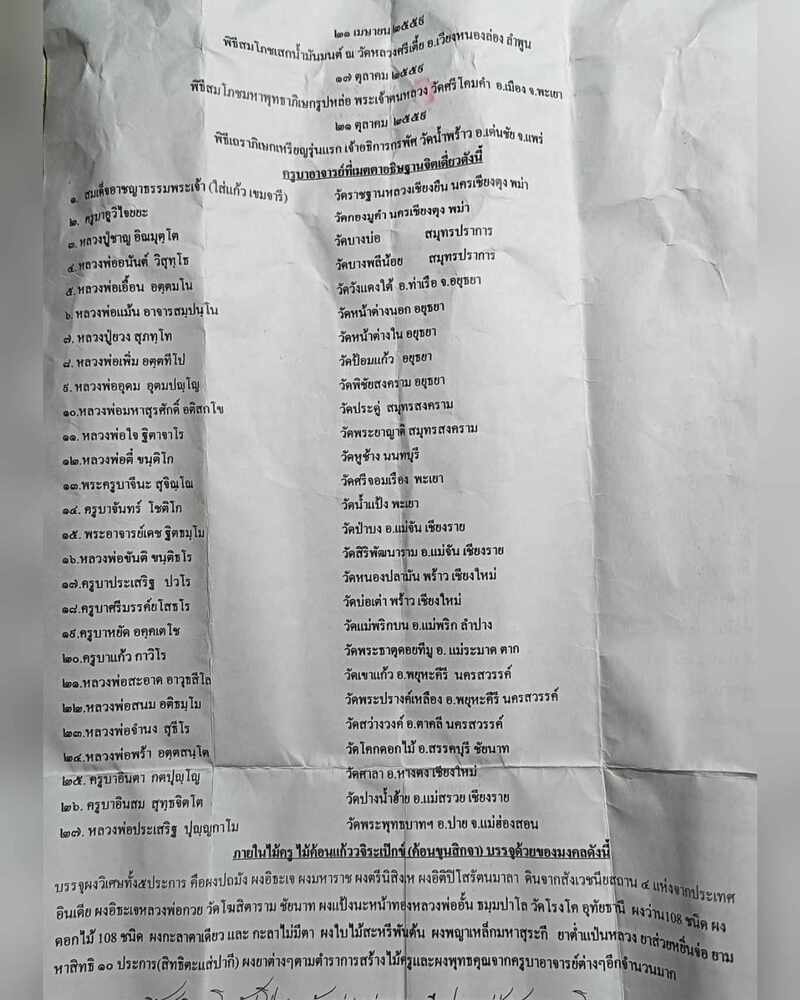 ๒๑ เมษายน ๒๕๕๙
พิธีสมโภชเสกน้ำมันมนต์ ณ วัดหลวงศรีเตี้ย อ.เวียงหนองล่อง ลำพูน
๑๗ ตุลาคม ๒๕๕๙
พิธีสมโภชมหาพุทธาภิเษกรูปหล่อ พระเจ้าตนหลวง วัดศรีโคมคำ อ.เมือง จ.พะเยา
๒๑ ตุลาคม ๒๕๕๙
พิธีเถราภิเษกเหรียญรุ่นแรก เจ้าอธิการกรพัศ วัดน้ำพร้าว อ.เด่นชัย จ.แพร่
ครูบาอาจารย์ที่เมตตาอธิษฐานจิตเดี่ยวดังนี้
๑. สมเด็จอาชญาธรรมพระเจ้า (ใส่แก้ว เขมจารี) วัดราชฐานหลวงเชียงยืน นครเชียงตุง พม่า
๒. ครูบาอูวิไจยยะ วัดกองมูคำ นครเชียงตุง พม่า
๓. หลวงปู่ชาญ อิณมุตฺโต วัดบางบ่อ สมุทรปราการ
๔. หลวงพ่ออนันต์ วิสุทฺโธ วัดบางพลีน้อย สมุทรปราการ
๕. หลวงพ่อเอื้อน อตฺตมโน วัดวังแดงใต้ อ.ท่าเรือ จ.อยุธยา
๖. หลวงพ่อแม้น อาจารสมฺปนฺโน วัดหน้าต่างนอก อยุธยา
๗. หลวงปู่ยวง สุภทฺโท วัดหน้าต่างใน อยุธยา
๘. หลวงพ่อเพิ่ม อตฺตทีโป วัดป้อมแก้ว อยุธยา
๙. หลวงพ่ออุดม อุตมปญฺโญ วัดพิชัยสงคราม อยุธยา
๑๐.หลวงพ่อมหาสุรศักดิ์ อติสกโข วัดประดู่ สมุทรสงคราม
๑๑. หลวงพ่อใจ ฐิตาจาโร วัดพระยาญาติ สมุทรสงคราม
๑๒.หลวงพ่อตี๋ ขนฺติโก วัดหูช้าง นนทบุรี
๑๓.พระครูบาจีนะ สุจิณฺโณ วัดศรีจอมเรือง พะเยา
๑๔. ครูบาจันทร์ โชติโก วัดน้ำแป้ง พะเยา
๑๕. พระอาจารย์เดช ฐิตธมฺโม วัดป่าบง อ.แม่จัน เชียงราย
๑๖.หลวงพ่อขันติ ขนฺติธโร วัดสิริพัฒนาราม อ.แม่จัน เชียงราย
๑๗.ครูบาประเสริฐ ปวโร วัดหนองปลามัน พร้าว เชียงใหม่
๑๘.ครูบาศรีมรรค์ยโสธโร วัดบ่อเต่า พร้าว เชียงใหม่
๑๙.ครูบาหยัด อคฺคเตโช วัดแม่พริกบน อ.แม่พริก ลำปาง
๒๐.ครูบาแก้ว กาวิโร วัดพระธาตุดอยทีมู อ. แม่ระมาด ตาก
๒๑.หลวงพ่อสะอาด อาวุธสีโล วัดเขาแก้ว อ.พยุหะคีรี นครสวรรค์
๒๒.หลวงพ่อสนม อติธมฺโม วัดพระปรางค์เหลือง อ.พยุหะคีรี นครสวรรค์
๒๓.หลวงพ่อจำนง สุธีโร วัดสว่างวงค์ อ.ตาคลี นครสวรรค์
๒๔.หลวงพ่อพร้า อตฺตสนฺโต วัดโคกดอกไม้ อ.สรรคบุรี ชัยนาท
๒๕. ครูบาอินตา กตปุญฺโญ วัดศาลา อ.หางดง เชียงใหม่
๒๖. ครูบาอินสม สุทฺธจิตโต วัดปางน้ำฮ้าย อ.แม่สรวย เชียงราย
๒๗. หลวงพ่อประเสริฐ ปุญฺญกาโม วัดพระพุทธบาทฯ อ.ปาย จ.แม่ฮ่องสอน
ภายในไม้ครู ไม้ค้อนแก้ววจิระเป๊กข์ (ค้อนขุนสิกจา) บรรจุด้วยของมงคลดังนี้
บรรจุผงวิเศษทั้ง๕ประการ คือผงปถมัง ผงอิธะเจ ผงมหาราช ผงตรีนิสิงเห ผงอิติปิโสรัตนมาลา ดินจากสังเวชนียสถาน ๔ แห่งจากประเทศ
อินเดีย ผงอิธะเจหลวงพ่อกวย วัดโฆสิตาราม ชัยนาท ผงแป้งนะหน้าทองหลวงพ่ออั้น ธมฺมปาโล วัดโรงโค อุทัยธานี ผงว่าน108 ชนิด ผง
ดอกไม้ 108 ชนิด ผงกะลาตาเดียว และ กะลาไม่มีตา ผงใบไม้สะหรีพันต้น ผงพญาเหล็กมหาสุระกี ยาต่ำแป้นหลวง ยาส่วยหยิ่นจ่อ ยาม
หาสิทธิ ๑๐ ประการ(สิทธิตะแส่ปากี) ผงยาต่างๆตามตำราการสร้างไม้ครูและผงพุทธคุณจากครูบาอาจารย์ต่างๆอีกจำนวนมาก